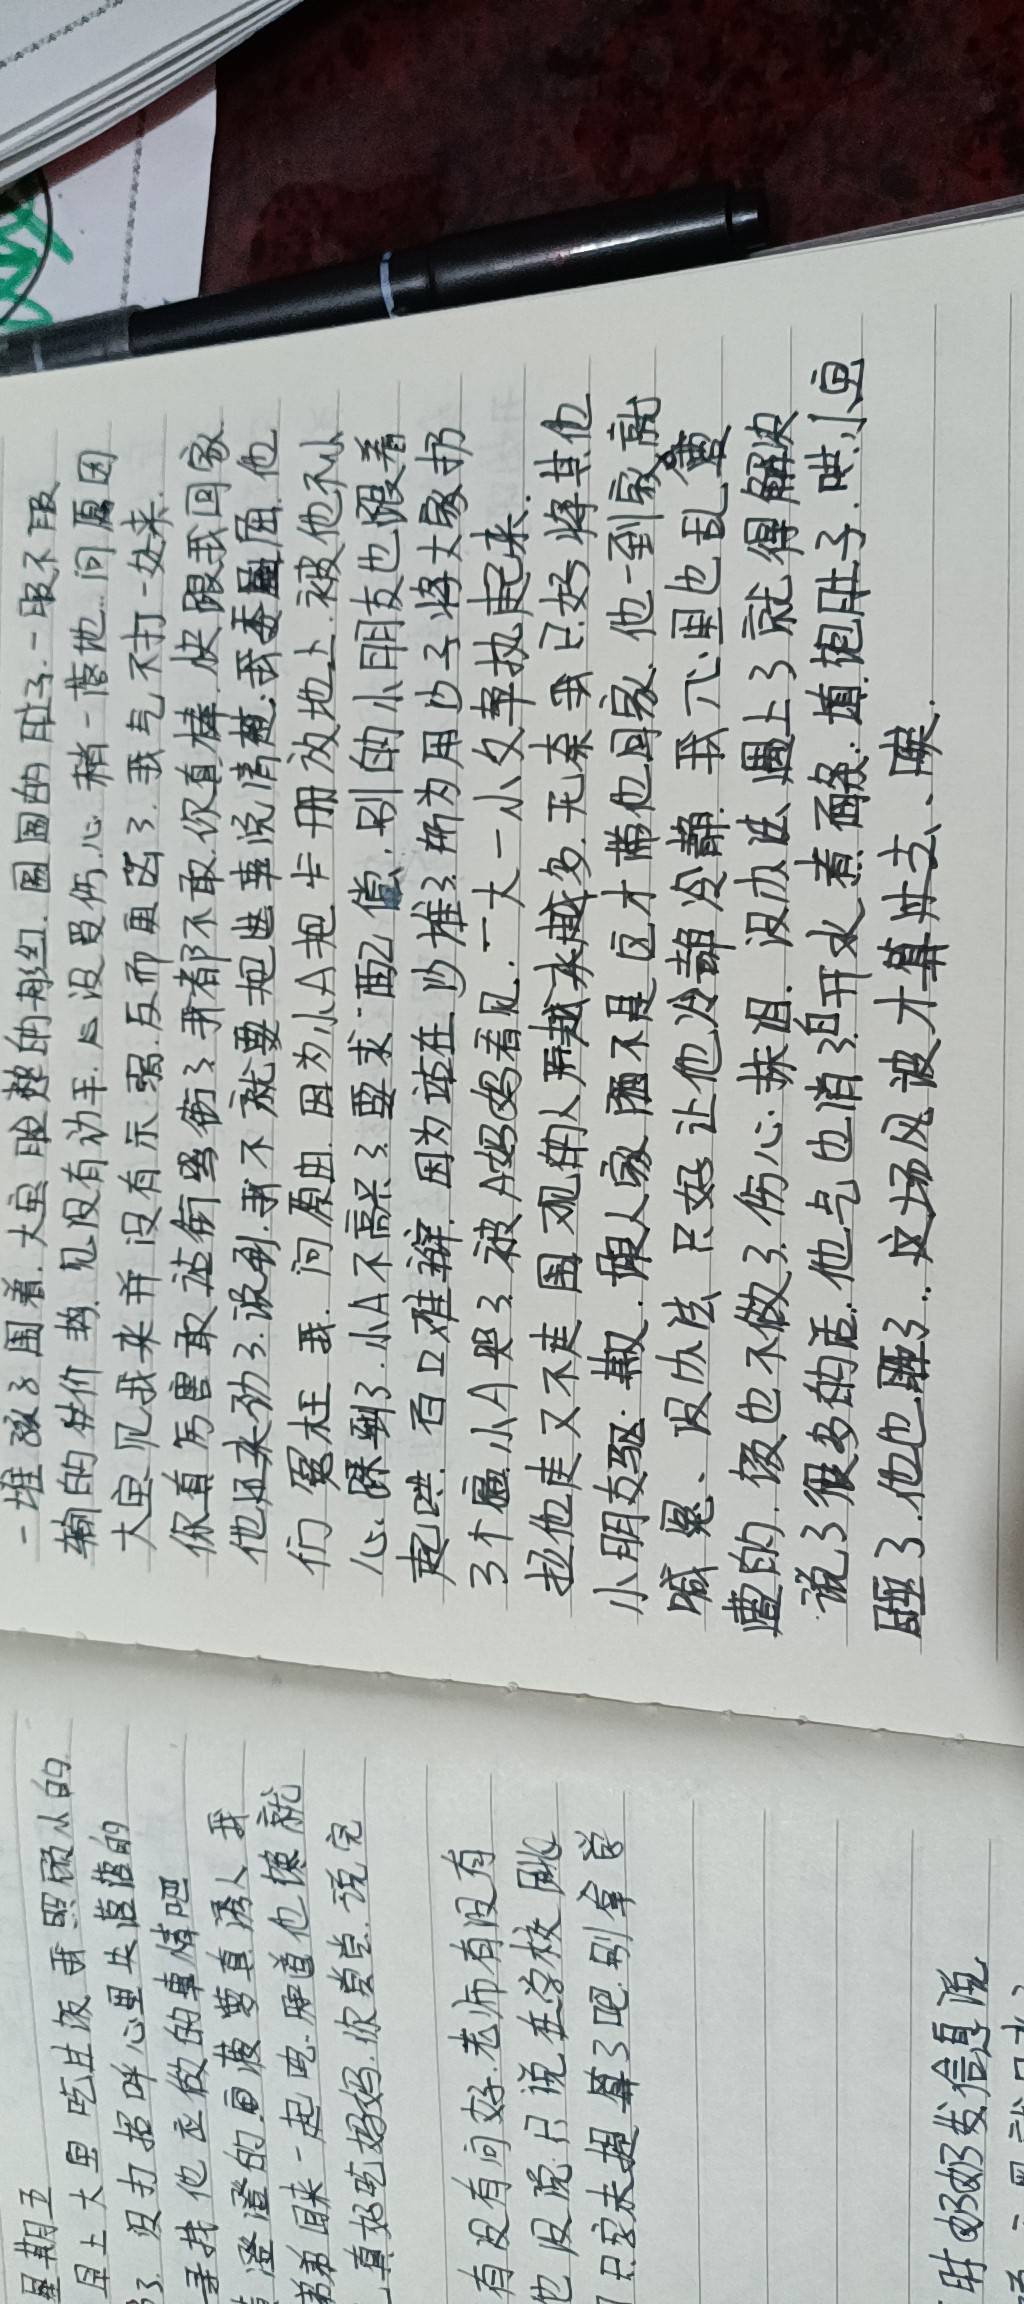 一堆孩子围着.大宝脸憋的彤红.圆圆的肚子.一般不服
输的作价势.见没有动手.也没受伤.心稍一落地.问原因
大宝见我来并没有示弱.反而更凶了.我气不打一处来.
你真厉害敢站街当街了.我都不敢.你真棒.快跟我回家
他还来劲了.说到.我不.就要把这事说清楚.我委屈.他
们冤枉我.问原由.因为小A把卡册放地上.被他不小
心踩到了.小A不高兴了.要求:配偿.别的小朋友也跟着
起哄.百口难辩.因为站在沙堆了.称为用沙子将大家扔
了个遍.小A哭了.被A妈妈看见.一大一小又争执起来.
拉他走又不走.围观的人们越来越多.无奈我只好将其他
小朋友驱散.跟人家陪不是.这才带他回家.他一到家就
喊冤、没办法只好让他冷静冷静.我心里也乱
糟的.饭也不做了.伤心.抹泪.没办法.遇上了就得解决
说了很多的话.他气也消了.开水煮面条.填饱肚子.哄小鱼
睡了.他也睡了..这场风波才算过去、唉.
星期五
早上大鱼吃过饭我照顾
没打招呼心里失落落的
寻找他应做的事情吧
澄澄的菠萝真诱人我
弟弟回来一起吃.那道也馋就
真好吃妈妈.你尝尝.说完
有没有问好.老师有没有
他没说.只说在学校
只字未提算了吧.别拿学
时奶奶发信息说